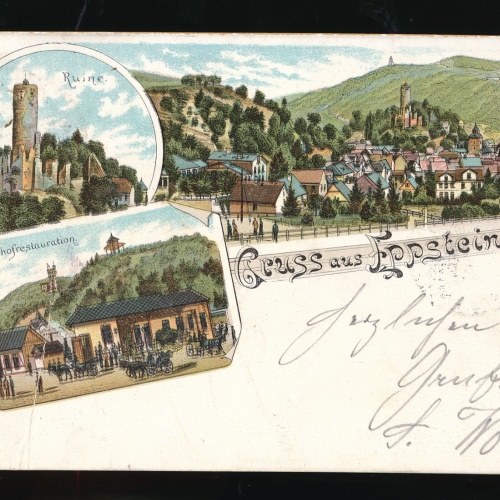 Ruine.
hofrestauration
Gruss aus Eppstein
Herzlichen
Gruß